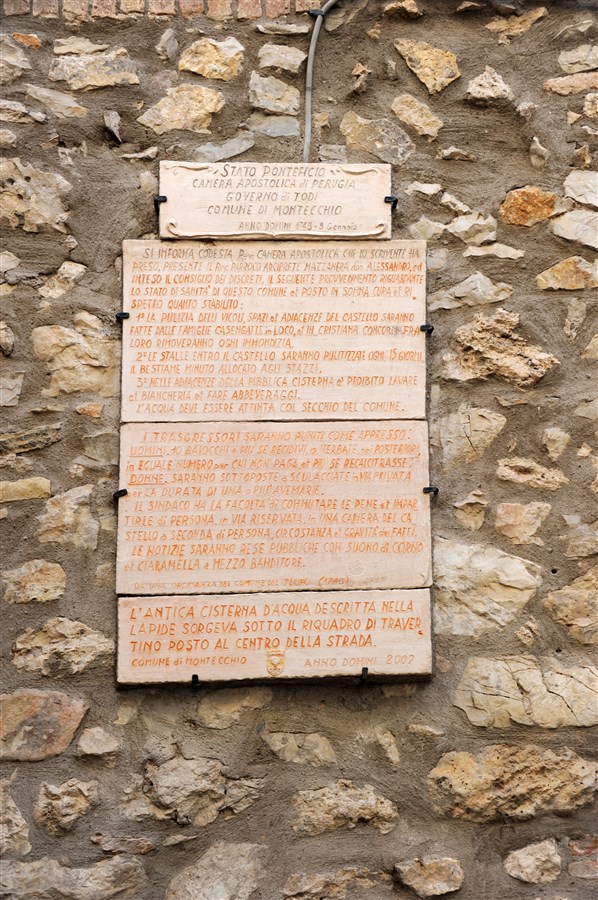 STATO PONTEFICIO
CAMERA APOSTOLICA di PERUGIA
GOVERNO di TODI
COMUNE DI MONTECCHIO
ANNO DOMINI Gennaio
SI INFORMA CODESTA CAMERA APOSTOLICA CHE IO SCRIVENTE HA
PRESO, PRESENTE IL PARROCO ARCIPRETE MAZZANERA don ALESSANDRO, ed
INTESO IL CONSIGLIO DEI DISCRETI, IL SEGUENTE PROVVEDIMENTO RIGUARDANTE
LO STATO DI SANITA' DI QUESTO COMUNE et POSTO IN SOMMA CURA et RI
SPETTO QUANTO STABILITO:
1a LA PULIZIA DELLI VICOLI, SPAZI et ADIACENZE DEL CASTELLO SARANNO
FATTE DALLE FAMIGLIE CASENGATTE in LOCO, et IN CRISTIANA CONCORDIA
LORO RIMOVERANNO OGNI IMMONDIZIA.
2a LE STALLE ENTRO IL CASTELLO SARANNO PULITIZZATE OGNI 15 GIORNI,
IL BESTIAME MINUTO ALLOCATO AGLI STAZZI.
3a NELLE ADIACENZE DELLA PUBBLICA CISTERNA e' PROIBITO LAVARE
et BIANCHERIA et FARE ABBEVERAGGI.
L'ACQUA DEVE ESSERE ATTINTA COL SECCHIO DEL COMUNE.
I TRASGRESSORI SARANNO PUNITI COME APPRESSO:
UOMINI: 10 BAIOCCHI e PIU' SE RECIDIVI, o VERBATE nei POSTERIORI
in EGUALE NUMERO per CHI NON PAGA et PIU' SE RECALCITRASSE
DONNE: SARANNO SOTTOPOSTE a SCULACCIATE in VIA PRIVATA
per LA DURATA DI UNA o PIU' AVEMARIE.
IL SINDACO HA LA FACOLTA di COMMUTARE LE PENE et IMPAR
TIRLE di PERSONA, in VIA RISERVATA, in UNA CAMERA DEL CA
STELLO a SECONDA di PERSONA, CIRCOSTANZA et GRAVITA' dei FATTI.
LE NOTIZIE SARANNO RESE PUBBLICHE CON SUONO di CORNO
et CIARAMELLA a MEZZO BANDITORE.
L'ANTICA CISTERNA D'ACQUA DESCRITTA NELLA
LAPIDE SORGEVA SOTTO IL RIQUADRO DI TRAVER
TINO POSTO AL CENTRO DELLA STRADA.
COMUNE di MONTECCHIO ANNO DOMINI 2007